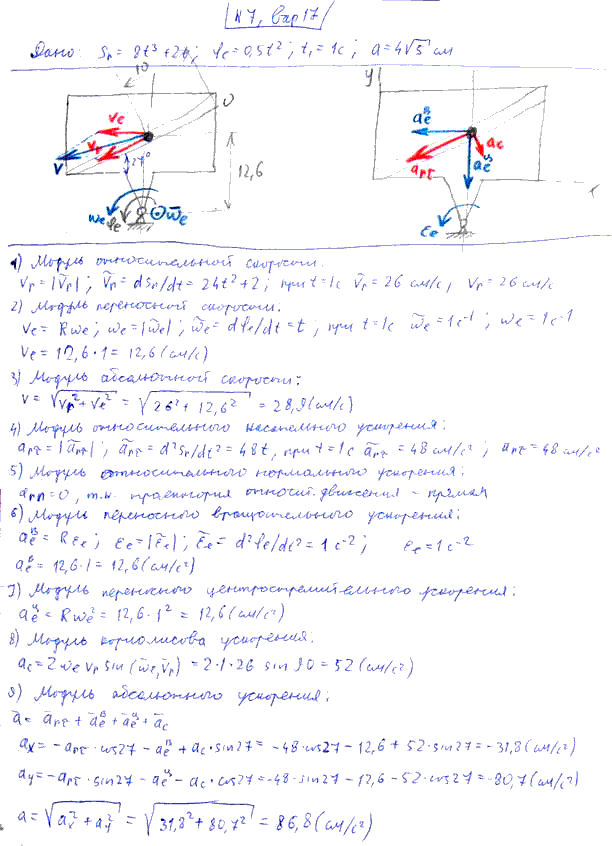 К7, вар 17
Дано: Sr = 8t³ + 2t; φe = 0,5t²; t₁ = 1c; a = 4√5 см
10
O
y
Ve
Vr
V
27°
12,6
ωe
φe
ω̄e
aeᴮ
ac
arτ
aeᶣ
εe
x
1) Модуль относительной скорости:
Vr = |Ṽr|; Ṽr = dSr/dt = 24t² + 2; при t = 1c Ṽr = 26 см/с, Vr = 26 см/с
2) Модуль переносной скорости:
Ve = Rωe; ωe = |ω̃e|; ω̃e = dφe/dt = t; при t = 1c ω̃e = 1c⁻¹; ωe = 1c⁻¹
Ve = 12,6·1 = 12,6 (см/с)
3) Модуль абсолютной скорости:
V = √Vr² + Ve² = √26² + 12,6² = 28,9 (см/с)
4) Модуль относительного касательного ускорения:
arτ = |ãrτ|; ãrτ = d²Sr/dt² = 48t, при t = 1c ãrτ = 48 см/с²; arτ = 48 см/с²
5) Модуль относительного нормального ускорения:
arn = 0, т.к. траектория относит. движения - прямая
6) Модуль переносного вращательного ускорения:
aeᴮ = Rεe; εe = |ε̃e|; ε̃e = d²φe/dt² = 1c⁻²; εe = 1c⁻²
aeᴮ = 12,6·1 = 12,6 (см/с²)
7) Модуль переносного центростремительного ускорения:
aeᶣ = Rωe² = 12,6·1² = 12,6 (см/с²)
8) Модуль кориолисова ускорения:
ac = 2ωe Vr sin(ω̄e, V̄r) = 2·1·26 sin 90 = 52 (см/с²)
9) Модуль абсолютного ускорения:
ā = ārτ + āeᴮ + āeᶣ + āc
ax = -arτ·cos27 - aeᴮ + ac·sin27 = -48·cos27 - 12,6 + 52·sin27 = -31,8 (см/с²)
ay = -arτ·sin27 - aeᶣ - ac·cos27 = -48·sin27 - 12,6 - 52·cos27 = -80,7 (см/с²)
a = √ax² + ay² = √31,8² + 80,7² = 86,8 (см/с²)